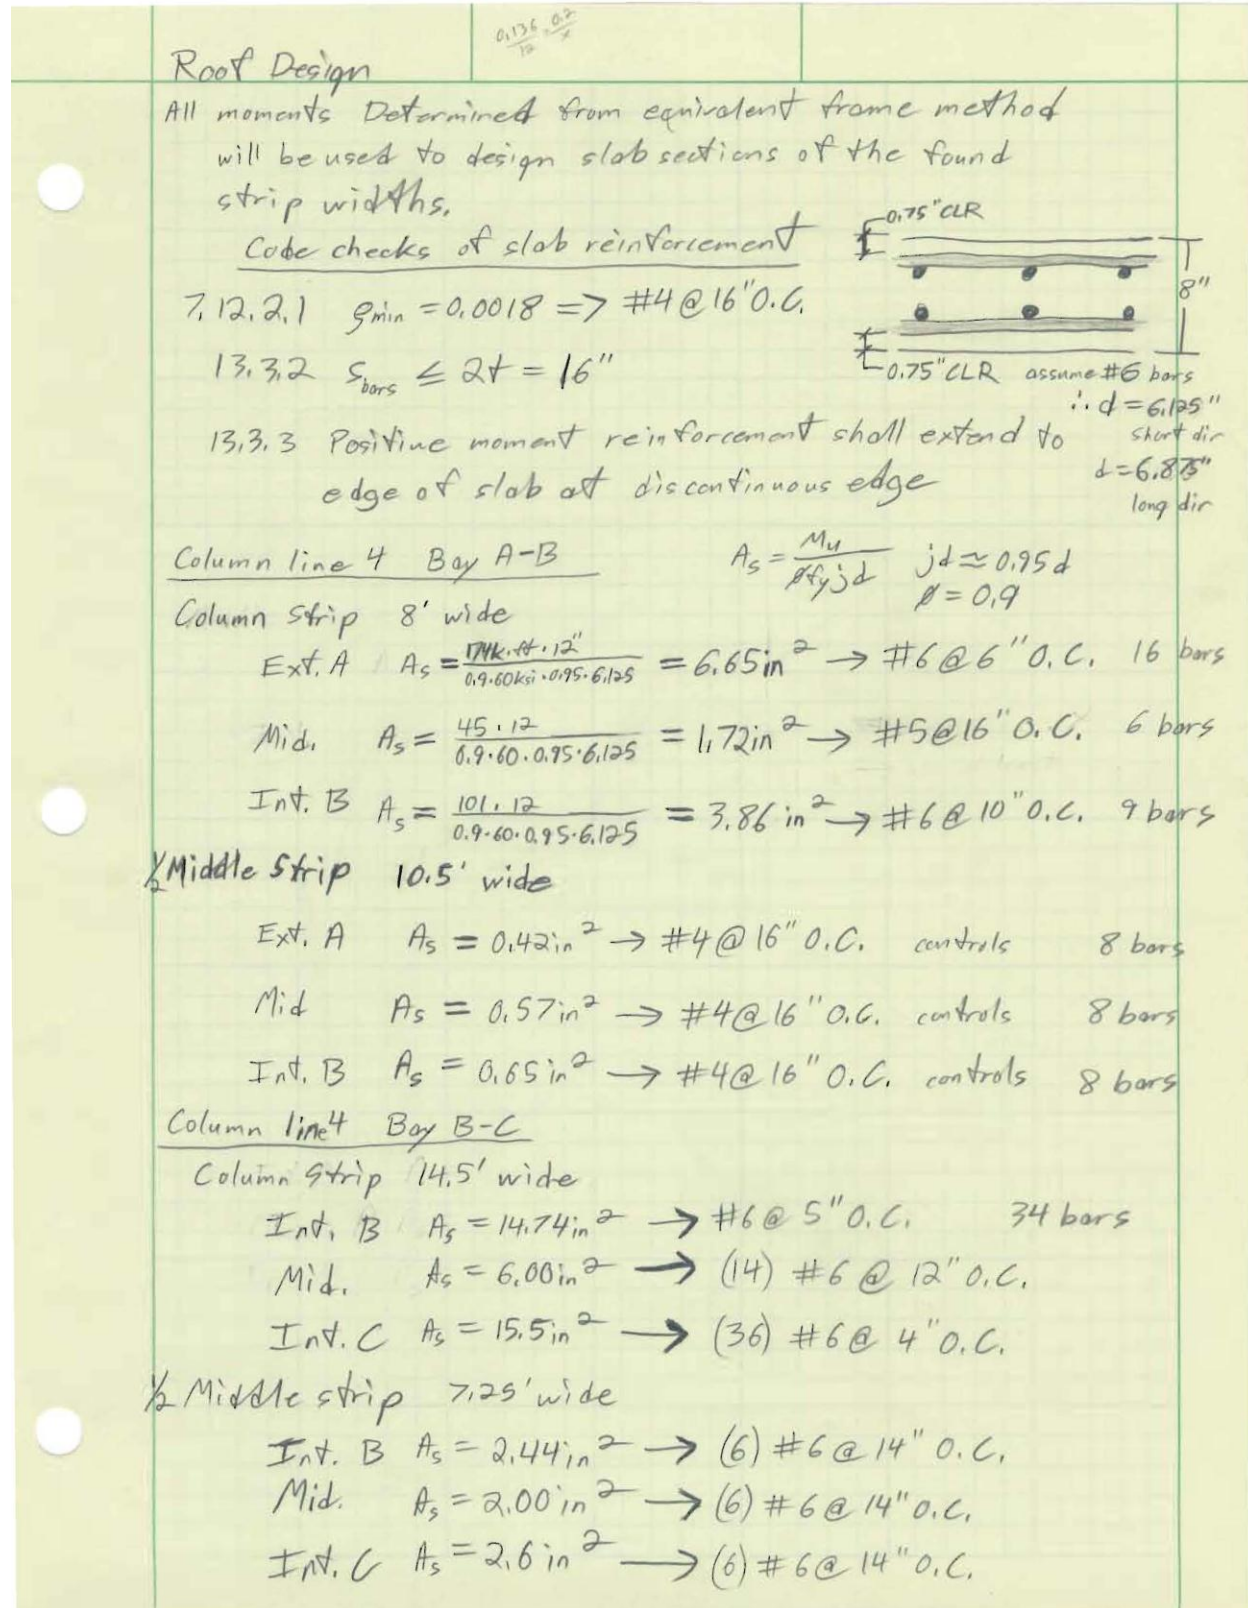 0.136 0.2
12 x
Roof Design
All moments Determined from equivalent frame method
will be used to design slab sections of the found
strip widths.
0.75" CLR
Code checks of slab reinforcement
8"
7.12.2.1 ρmin = 0.0018 => #4 @ 16" O.C.
13.3.2 Sbars ≤ 2t = 16"
0.75" CLR assume #6 bars
∴ d = 6.125"
short dir
13.3.3 Positive moment reinforcement shall extend to
edge of slab at discontinuous edge
d = 6.875"
long dir
Column line 4 Bay A-B
As = Mu / ϕfyjd jd ≈ 0.95d
ϕ = 0.9
Column Strip 8' wide
Ext. A As = 174k·ft·12" / 0.9·60ksi·0.95·6.125 = 6.65in² → #6 @ 6" O.C. 16 bars
Mid. As = 45·12 / 0.9·60·0.95·6.125 = 1.72in² → #5 @ 16" O.C. 6 bars
Int. B As = 101·12 / 0.9·60·0.95·6.125 = 3.86in² → #6 @ 10" O.C. 9 bars
1/2 Middle Strip 10.5' wide
Ext. A As = 0.42in² → #4 @ 16" O.C. controls 8 bars
Mid As = 0.57in² → #4 @ 16" O.C. controls 8 bars
Int. B As = 0.65in² → #4 @ 16" O.C. controls 8 bars
Column line 4 Bay B-C
Column Strip 14.5' wide
Int. B As = 14.74in² → #6 @ 5" O.C. 34 bars
Mid. As = 6.00in² → (14) #6 @ 12" O.C.
Int. C As = 15.5in² → (36) #6 @ 4" O.C.
1/2 Middle strip 7.25' wide
Int. B As = 2.44in² → (6) #6 @ 14" O.C.
Mid. As = 2.00in² → (6) #6 @ 14" O.C.
Int. C As = 2.6in² → (6) #6 @ 14" O.C.